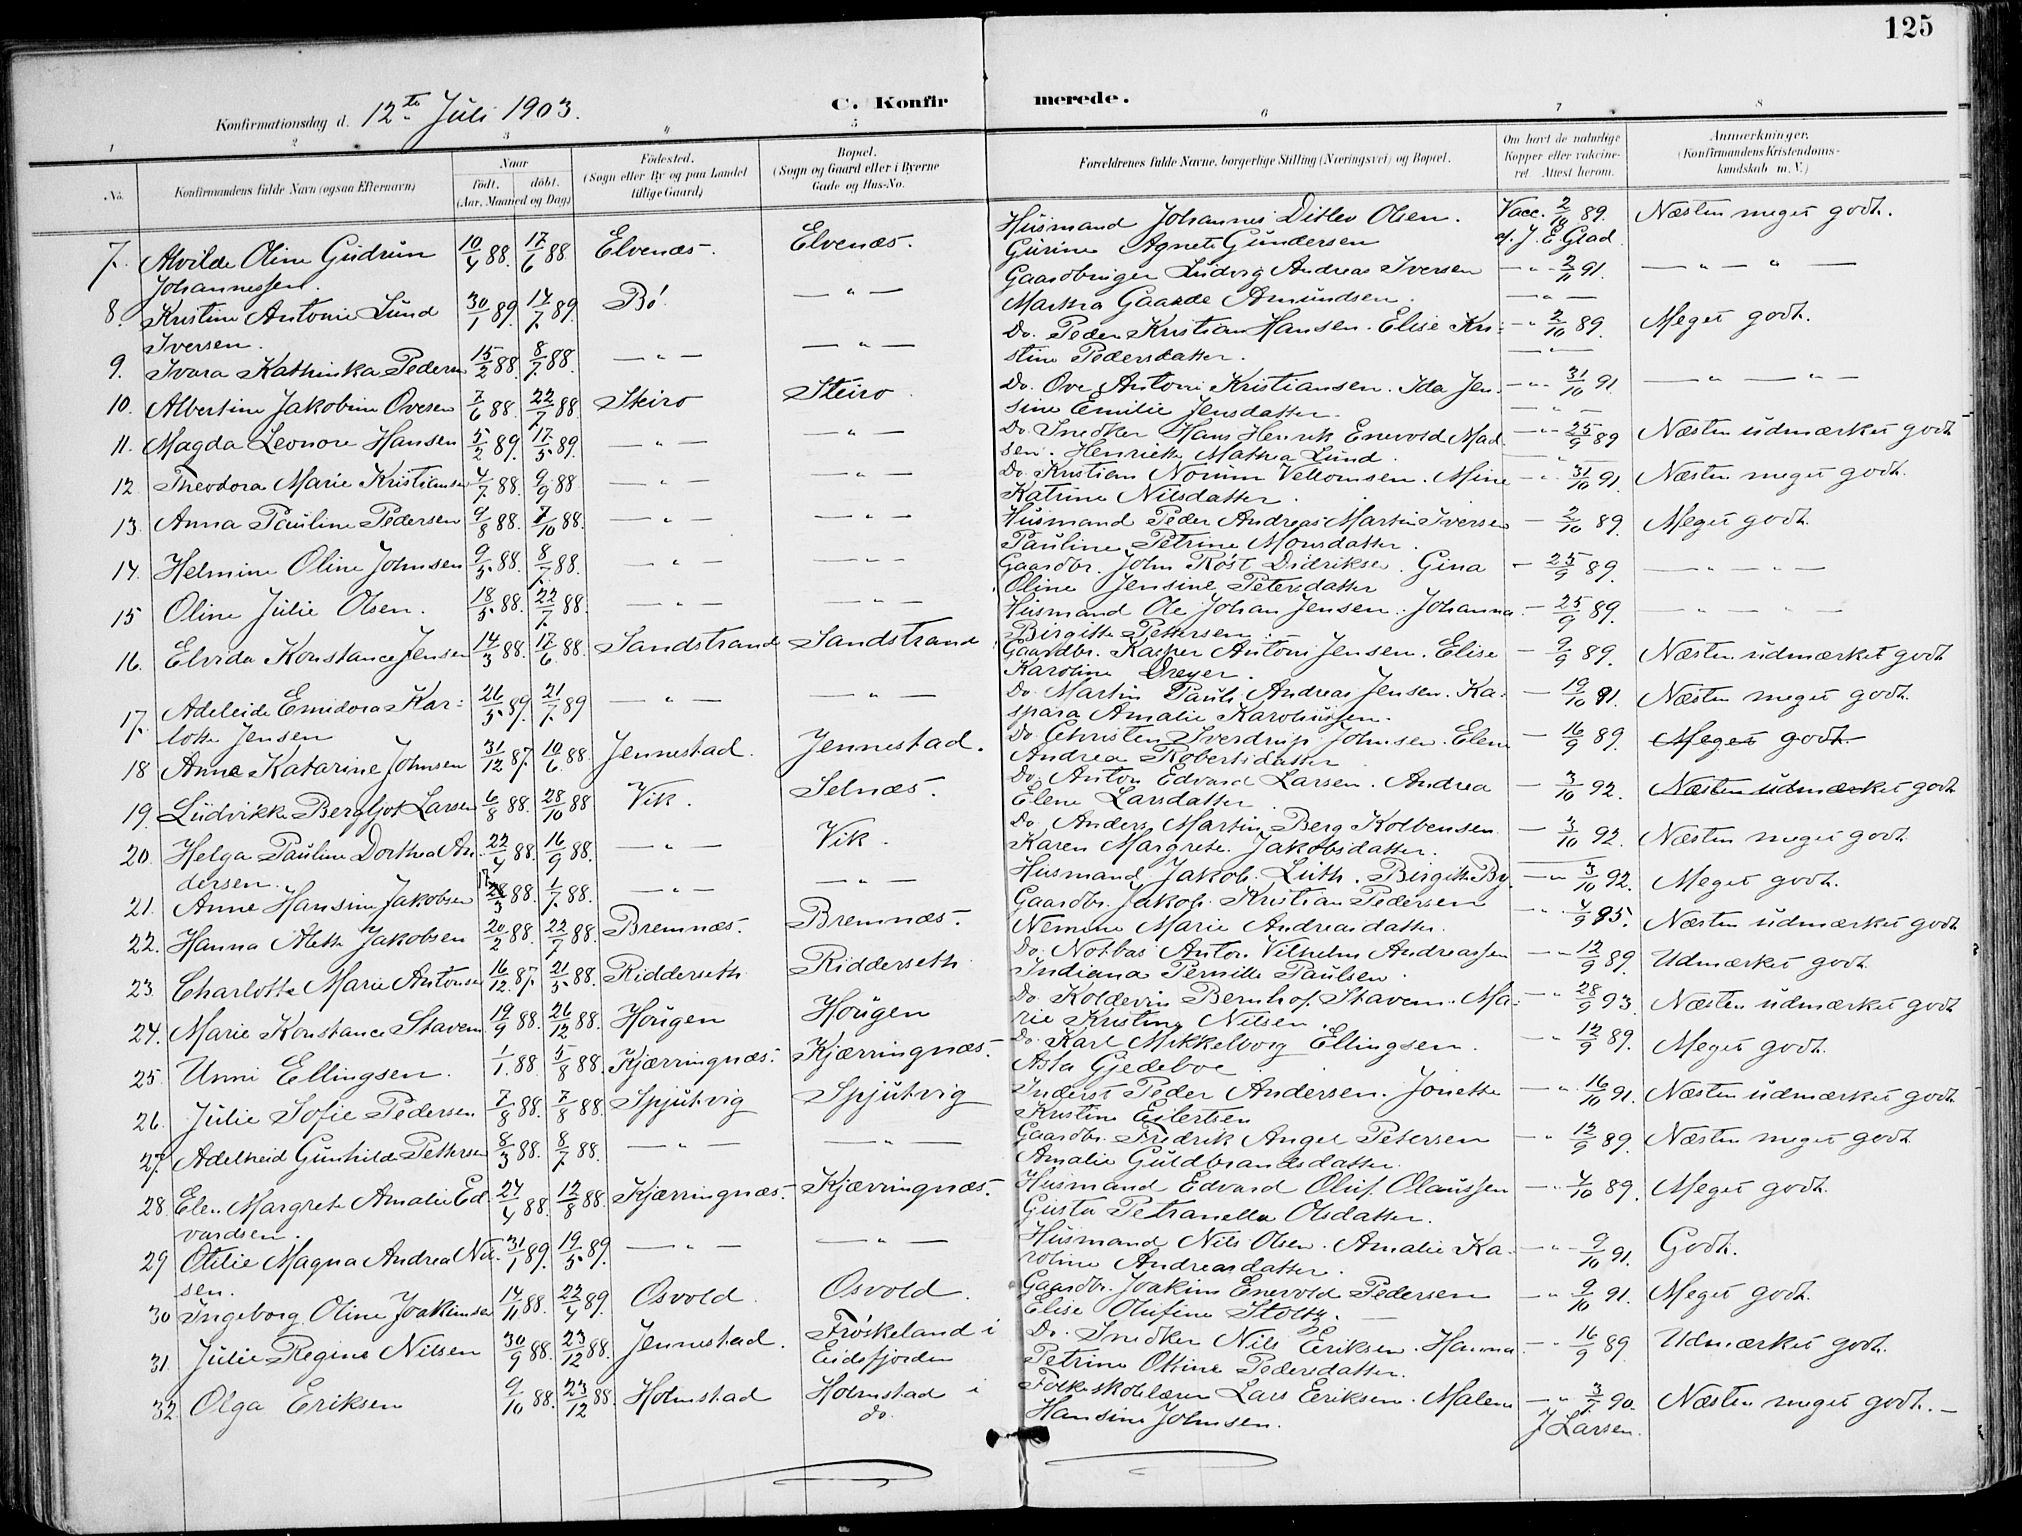 125
C. Konfirmerede.
Konfirmationsdag d. 12te Juli 1903.
1 2 3 4 5 6 7 8
No. Konfirmandens fulde Navn (ogsaa Efternavn)
Naar født. døbt. (Aar, Maaned og Dag)
Fødested. (Sogn eller By og paa Landet tillige Gaard)
Bopæl. (Sogn og Gaard eller i Byerne Gade og Hus-No.
Forældrenes fulde Navne, borgerlige Stilling (Næringsvei) og Bopæl.
Om havt de naturlige Kopper eller vakcineret. Attest herom.
Anmærkninger. (Konfirmandens Kristendomskundskab m. V.)
7. Alvilde Oline Gudrun Johannessen. 10/4 88. 17/6 88 Elvenæs. Elvenæs. Husmand Johannes Ditlev Olsen. Gurine Agnete Gundersen Vacc. 2/10 89. af J. E Glad Næsten meget godt.
8. Kristine Antonie Lund Iversen. 30/1 89. 17/7 89. Bø — " — Gaardbruger Ludvig Andreas Iversen Martha Gaarde Amundsen. — " — 2/11 91. — " — " —
9. Ivara Kathinka Pedersen 15/2 88. 8/7 88. — " — — " — Do. Peder Kristian Hansen. Elise Kristine Pedersdatter. — " — 2/10 89. Meget godt.
10. Albertine Jakobine Ovesen 7/6 88. 22/7 88 Steiro Steiro. Do. Ove Antoni Kristiansen. Ida Jensine Emilie Jensdatter. — " — 31/10 91. — " — " —
11. Magda Leonore Hansen 5/2 89. 17/5 89. — " — — " — Do. Snedker Hans Henrik Enevold Madsen. Henriette Mathea Lund. — " — 25/9 89 Næsten udmærket godt
12 Theodora Marie Kristiansen 4/7 88. 9/9 88 — " — — " — Do. Kristian Norum Vellomsen. Mine Katrine Nilsdatter. — " — 31/10 91. Næsten meget godt.
13. Anna Pauline Pedersen 9/8 88. 7/10 88. — " — — " — Husmand Peder Andreas Martin Iversen Pauline Petrine Monsdatter. — 2/10 89. Meget godt.
14. Helmine Oline Johnsen 9/5 88. 8/7 88. — " — — " — Gaardbr. John Røst Didriksen. Gina Oline Jensine Petersdatter — 25/9 89. — " — " —
15 Oline Julie Olsen. 18/5 88. 22/7 88. — " — — " — Husmand Ole Johan Jensen. Johanna Birgitte Pettersen. — 25/9 89. — " — " —
16. Elvida Konstance Jensen 14/3 88. 17/6 88. Sandstrand Sandstrand Gaardbr. Kasper Antoni Jensen. Elise Karoline Dreyer. — 9/9 89. Næsten udmærket godt
17. Adeleide Emidora Karlotte Jensen 26/5 89. 21/7 89 — " — — " — Do. Martin Pauli Andreas Jensen. Kaspara Amalie Karoliussen. — 19/10 91. Næsten meget godt.
18 Anne Katarine Johnsen 31/12 87. 10/6 88. Jennestad. Jennestad. Do. Christen Sverdrup Johnsen. Elen Andrea Robertsdatter — 16/9 89. Meget godt.
19. Ludvikke Bergljot Larsen 6/8 88. 28/10 88 Vik. Selnæs. Do. Anton Edvard Larsen. Andrea Elene Larsdatter. — 3/10 92. Næsten udmærket godt
20. Helga Pauline Dorthea Andersen. 22/4 88. 16/9 88. — " — Vik. Do. Anders Martin Berg Kolbensen Karen Margrete Jakobsdatter. — 3/10 92. Næsten meget godt.
21. Anne Hansine Jakobsen 3 88. 1/7 88. — " — — " — Husmand Jakob Luth. Birgitte By. — " 3/10 92. Meget godt.
22. Hanna Alette Jakobsen 20/2 88. 22/7 88. Bremnæs. Bremnæs. Gaardbr. Jakob Kristian Pedersen Nemine Marie Andreasdatter. — " 4/9 95. Næsten udmærket godt
23. Charlotte Marie Antonsen 16/12 87. 21/5 88. Ridderseth Ridderseth Do. Notbas Anton Vilhelm Andreassen Indiana Pernille Paulsen. — " 12/9 89. Udmærket godt.
24. Marie Konstance Stavem 19/9 88. 26/12 88. Hougen Hougen Do. Koldevin Bernhof Stavem. Marie Kristine Nilsen. — " 28/9 93. Næsten udmærket godt
25. Unni Ellingsen. 1/1. 88. 5/8 88. Kjærringnæs. Kjærringnæs. Do. Karl Mikkelborg Ellingsen. Asta Gjedeboe — " 12/9 89. Meget godt.
26. Julie Sofie Pedersen 7/8 88. 7/8 88. Spjutvig Spjutvig Inderst Peder Andersen. Jonette Kristine Eilertsen — " 16/10 91. Næsten udmærket godt.
27. Adelheid Gunhilde Pettersen 8/3 88. 8/7 88. — " — — " — Gaardbr. Fredrik Angel Petersen Amalie Guldbrandsdatter. — " 12/9 89. Næsten meget godt
28. Elen Margrete Amalie Edvardsen. 24/4 88. 12/8 88. Kjærringnæs. Kjærringnæs. Husmand Edvard Oluf Olaussen Gusta Petranella Olsdatter. — " 4/10 89. Meget godt.
29 Otilie Magna Andrea Nilsen. 31/1 89. 19/5 89. — " — — " — Husmand Nils Olsen. Amalie Karoline Andreasdatter. — " 9/10 91. Godt.
30 Ingeborg Oline Joakimsen 14/11 88. 22/4 89. Osvold Osvold. Gaardbr. Joakim Enevold Pedersen Elise Olufine Stoltz. — — " 9/10 91. Meget godt.
31. Julie Regine Nilsen 30/9 88. 23/12 88. Jennestad. Frøskeland i Eidsfjorden Do. Snedker Nils Eriksen. Hanna Petrine Ottine Pedersdatter. — " 16/9 89 Udmærket godt.
32 Olga Eriksen 9/10 88. 23/12 88. Holmstad Holmstad i do. Folkeskolelærer Lars Eriksen. Malene Hansine Johnsen. — " 3/7 90. J Larsen. Næsten meget godt. —